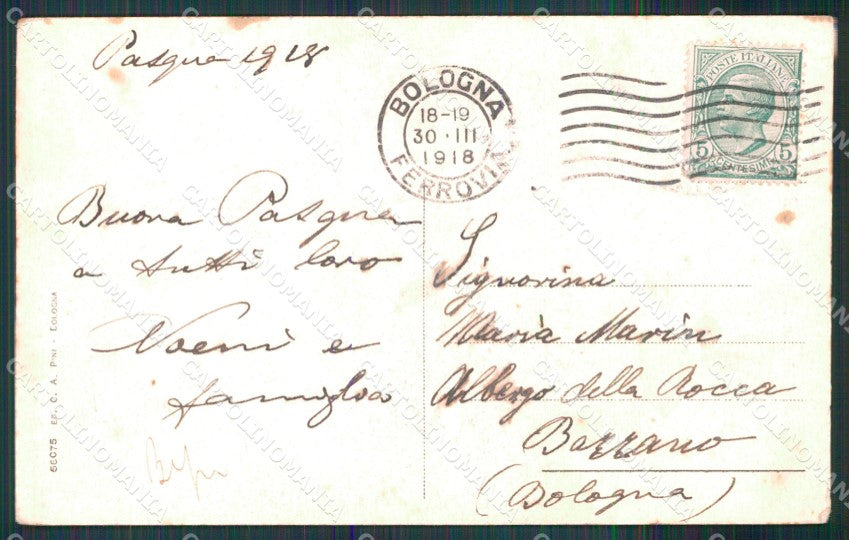 Pasqua 1918
BOLOGNA
18-19
30·III
1918
FERROVIA
POSTE ITALIANE
5 CENTESIMI 5
Buona Pasqua
a tutti loro
Noemi e
famiglia
Signorina
Maria Marin
Albergo della Rocca
Bazzano
(Bologna)
56075 ED. C. A. PINI - BOLOGNA
CARTOLINOMANIA